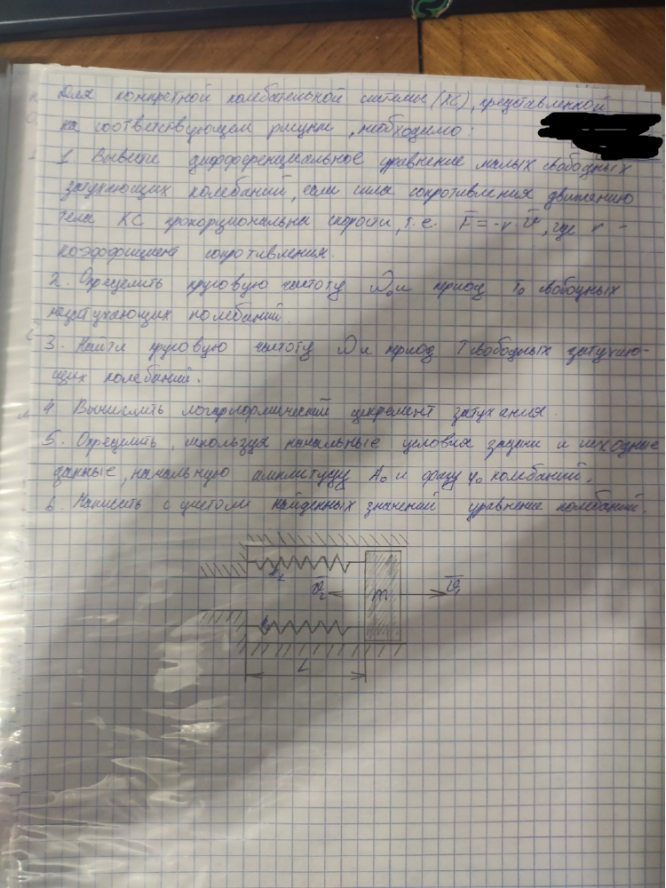 Для конкретной колебательной системы (КС), представленной
на соответствующем рисунке, необходимо:
1. Вывести дифференциальное уравнение малых свободных
затухающих колебаний, если сила сопротивления движению
тела КС пропорциональна скорости, т.е. F = -r · v, где r -
коэффициент сопротивления.
2. Определить круговую частоту ω₀ и период T₀ свободных
незатухающих колебаний
3. Найти круговую частоту ω и период T свободных затухаю-
щих колебаний.
4. Вычислить логарифмический декремент затухания.
5. Определить, используя начальные условия задачи и исходные
данные, начальную амплитуду A₀ и фазу φ₀ колебаний.
6. Написать с учетом найденных значений уравнение колебаний.
v₂ m v₁
L